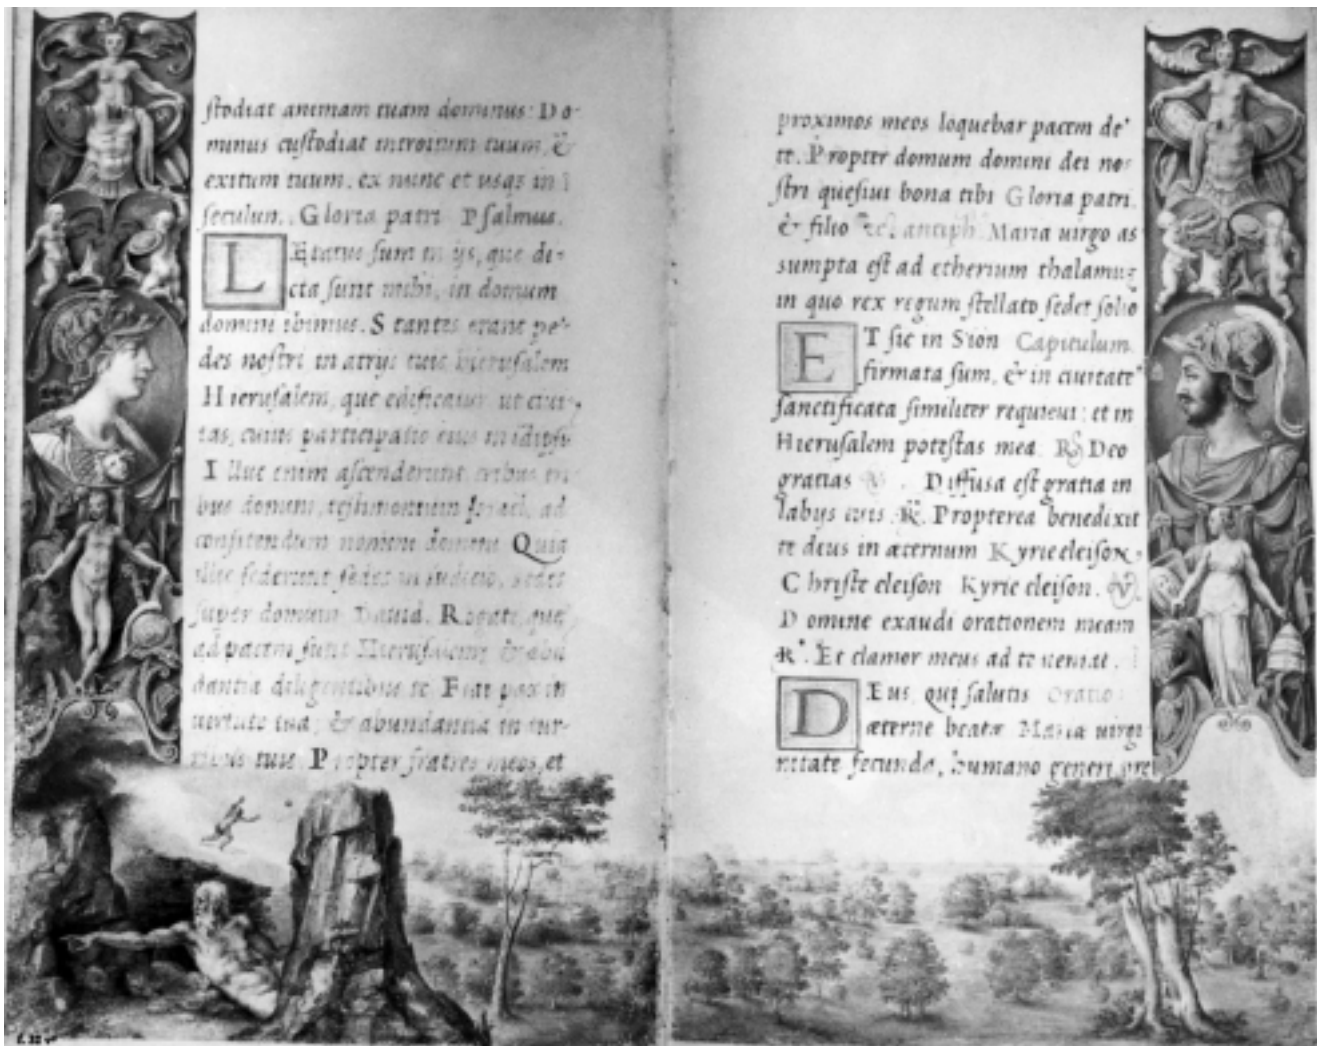 stodiat animam tuam dominus: Do-
minus custodiat introitum tuum, &
exitum tuum, ex nunc et usqz in
seculun. Gloria patri Psalmus.
LEtatus sum in ijs, que di-
cta sunt mihi, in domum
domini ibimus. Stantes erant pe-
des nostri in atrijs tuis hierusalem
Hierusalem, que edificatur ut ciui-
tas, cuius participatio eius in idipsu
Illuc enim ascenderunt tribus tri
bus domini, testimonium Israel, ad
confitendum nomini domini Quia
illic sederunt sedes in iudicio, sedes
super domum Dauid. Rogate, que
ad pacem sunt Hierusalem: & abu
dantia diligentibus te Fiat pax in
uirtute tua, & abundantia in tur-
ribus tuis Propter fratres meos, et
proximos meos loquebar pacem de
te. Propter domum domini dei no-
stri quesiui bona tibi Gloria patri.
& filio antiph. Maria uirgo as
sumpta est ad etherium thalamuz
in quo rex regum stellato sedet solio
ET sic in Sion Capitulum
firmata sum, & in ciuitate
sanctificata similiter requieui: et in
Hierusalem potestas mea R Deo
gratias V. Diffusa est gratia in
labijs tuis R. Propterea benedixit
te deus in æternum Kyrieeleison.
Christe eleison Kyrie eleison. V
Domine exaudi orationem meam
R. Et clamor meus ad te ueniat.
DEus, qui salutis Oratio
æterne beatæ Maria uirgi
nitate fecunda, humano generi pre